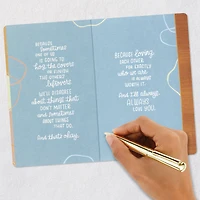 BECAUSE
Sometimes
ONE OF US
IS GOING TO
hog the covers
OR DEVOUR
THE OTHER'S
leftovers.
WE'LL DISAGREE
about things that
DON'T MATTER
and sometimes
ABOUT THINGS
THAT DO.
And that's okay.
BECAUSE loving
EACH OTHER
FOR EXACTLY
who we are
IS ALWAYS
WORTH IT.
And I'll always,
ALWAYS
LOVE YOU.